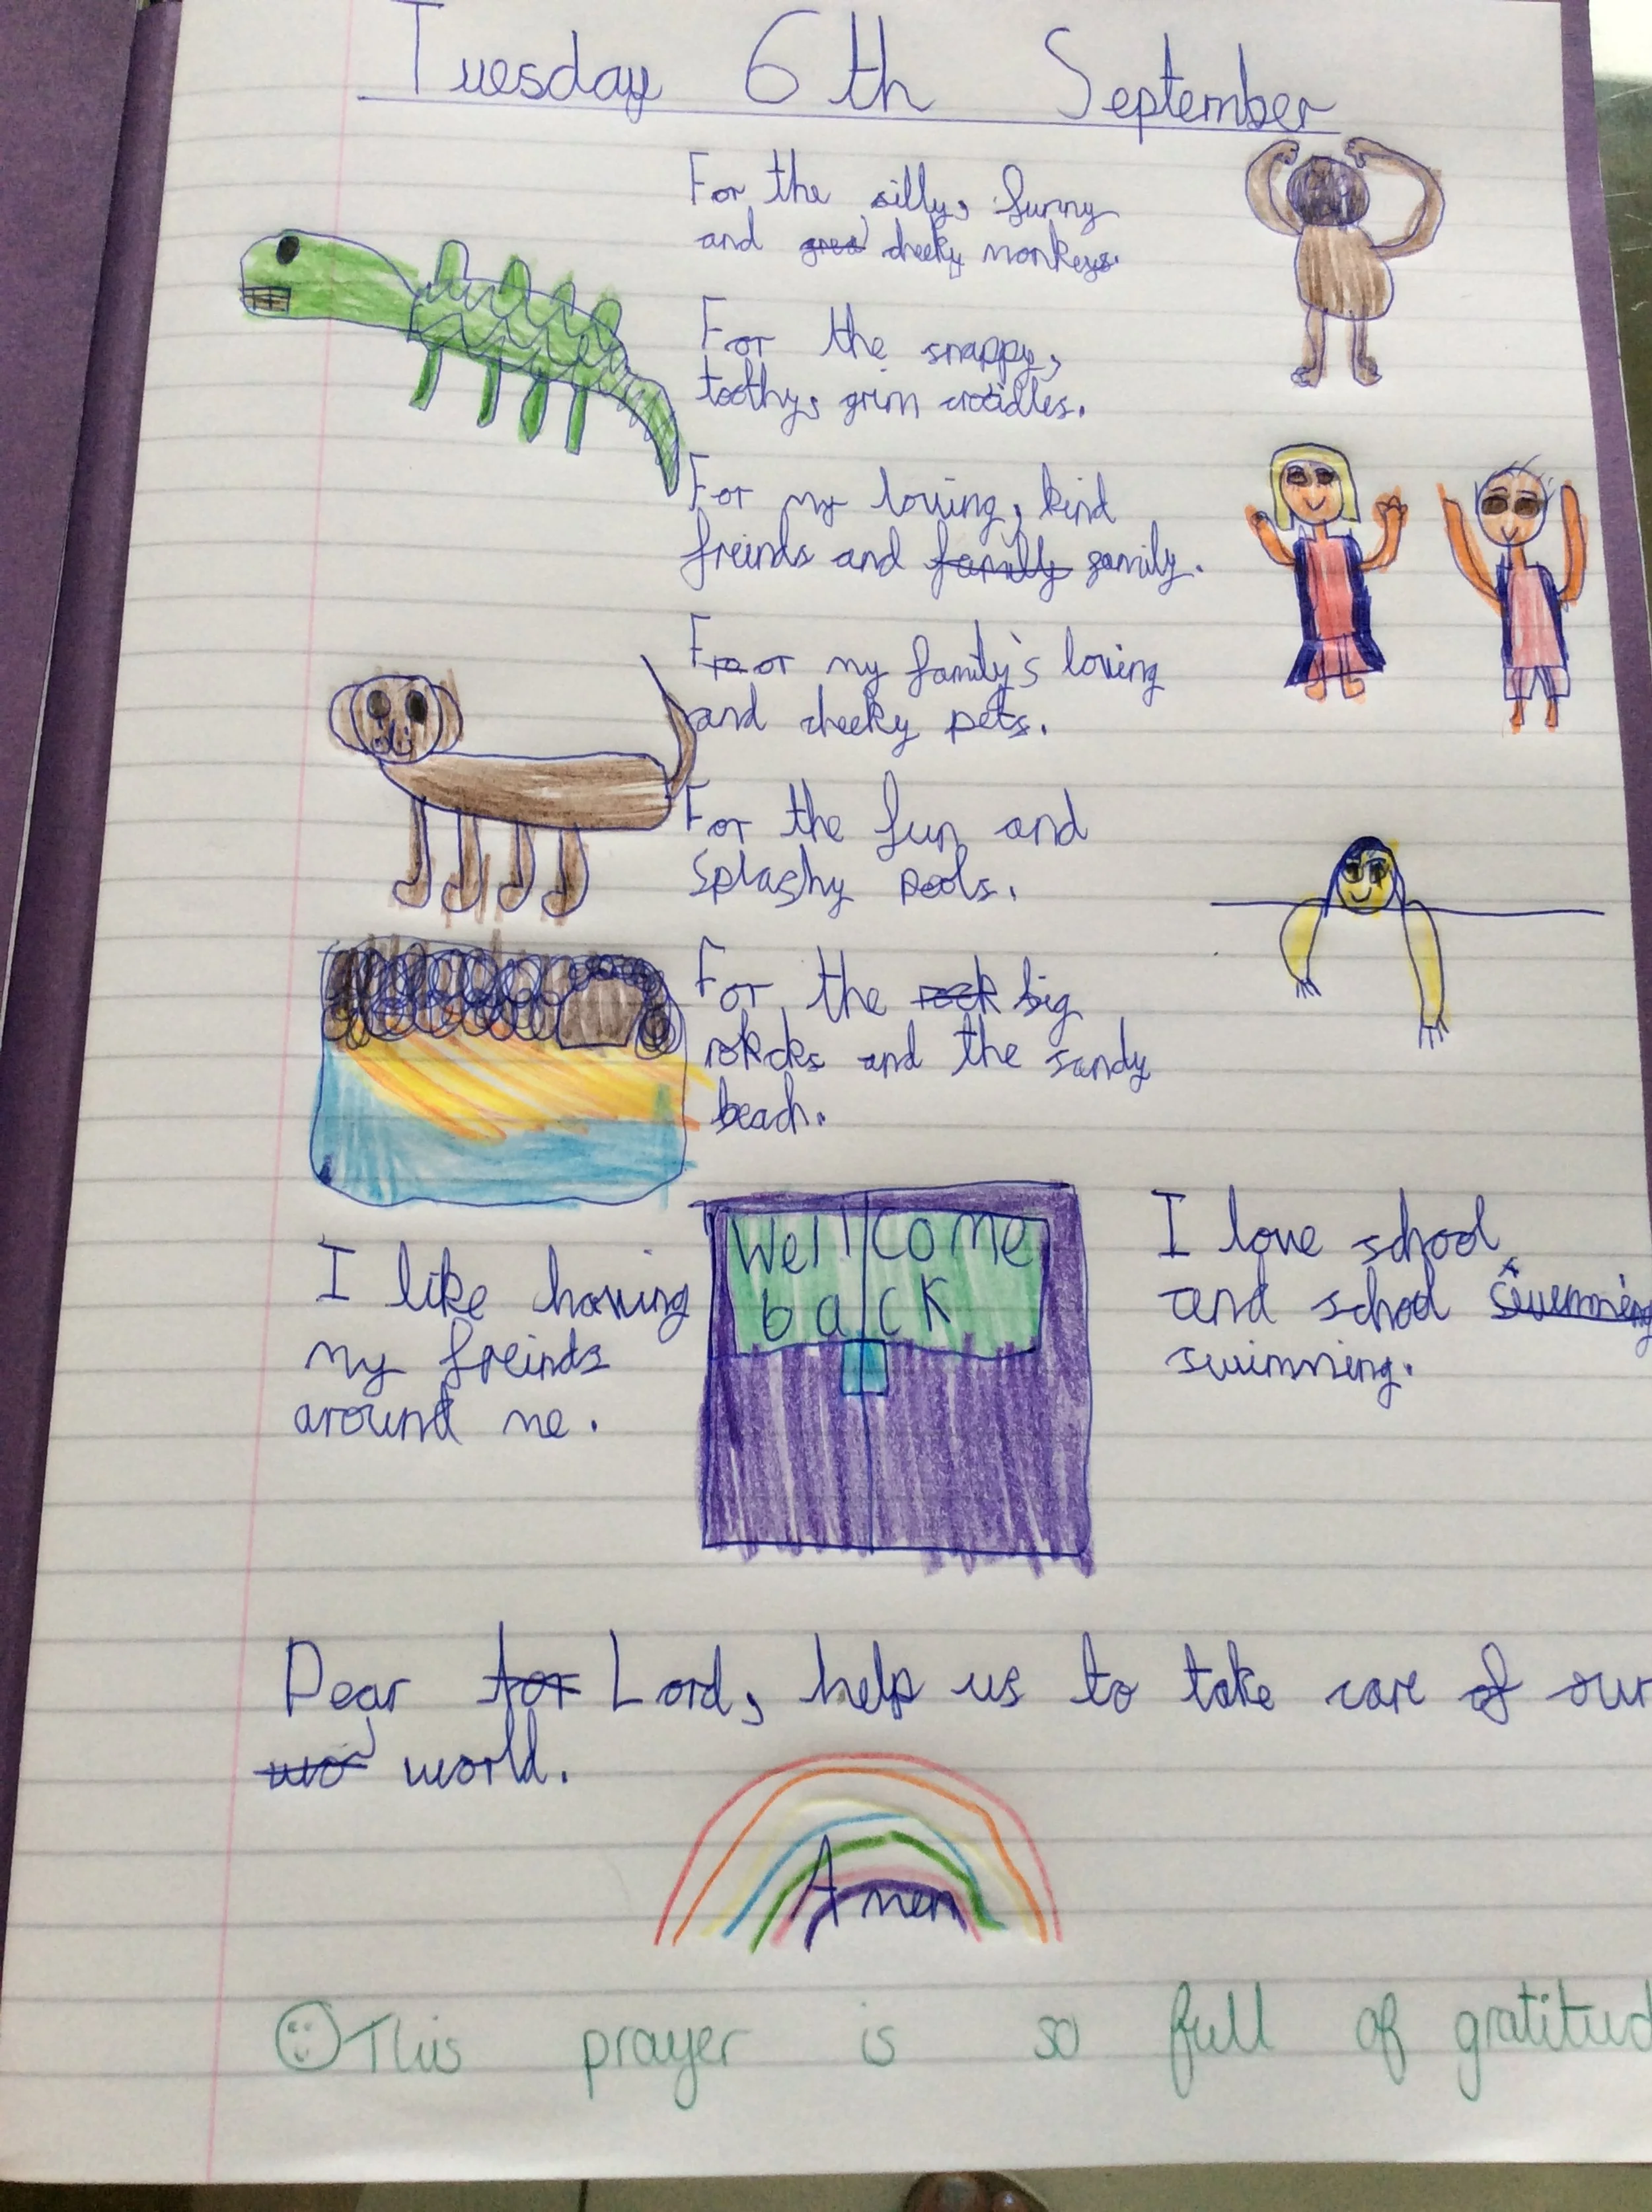 Tuesday 6th September
For the silly, funny
and cheeky monkeys.
For the snappy,
toothy, grim crocidles.
For my loving, kind
freinds and family family.
For my family's loving
and cheeky pets.
For the fun and
splashy pools.
For the rock big
rokcks and the sandy
beach.
I like having
my freinds
around me.
Wellcome
back
I love school
and school
swimming.
Dear for Lord, help us to take care of our
wo world.
Amen
This prayer is so full of gratitud